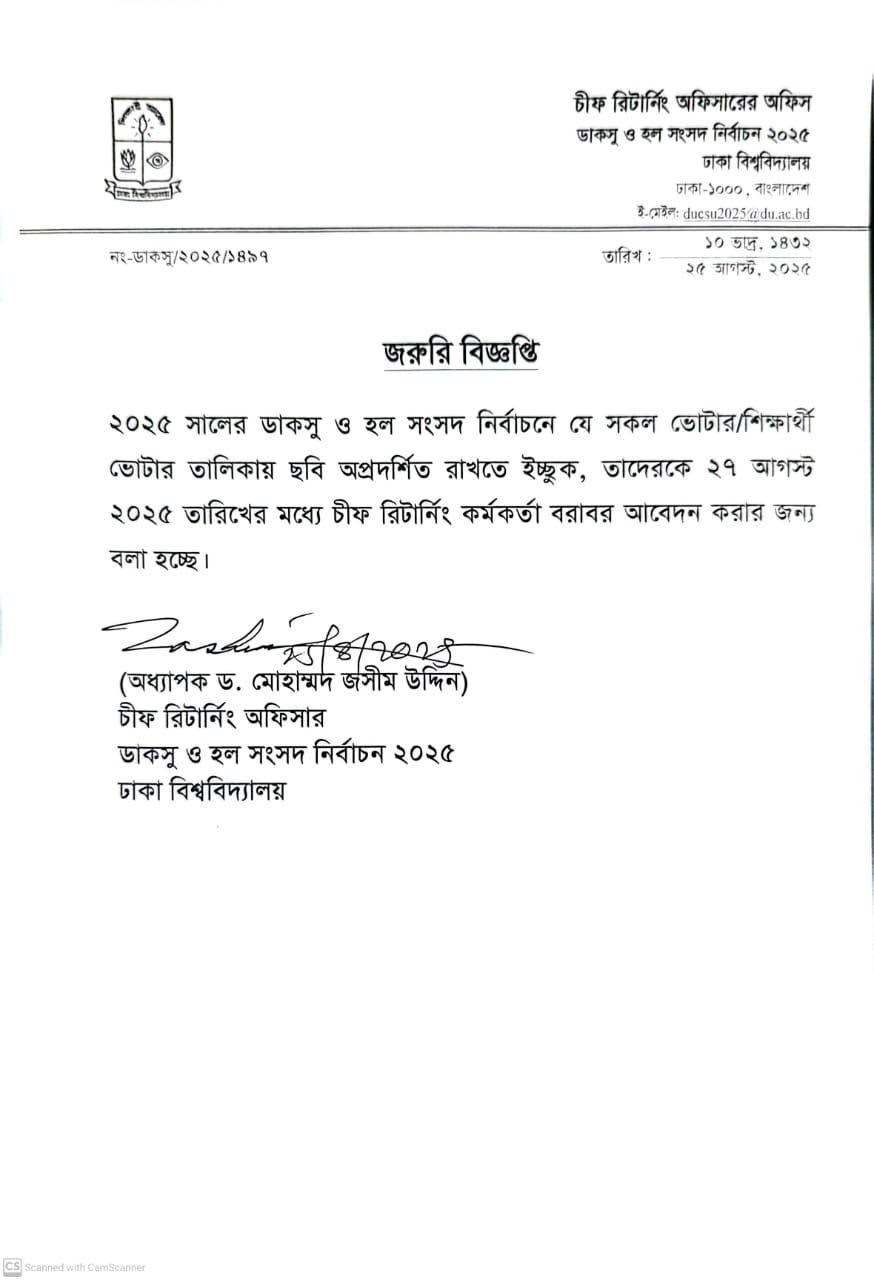 ঢাকা বিশ্ববিদ্যালয়
চীফ রিটার্নিং অফিসারের অফিস
ডাকসু ও হল সংসদ নির্বাচন ২০২৫
ঢাকা বিশ্ববিদ্যালয়
ঢাকা-১০০০, বাংলাদেশ
ই-মেইল: ducsu2025@du.ac.bd
নং-ডাকসু/২০২৫/১৪৯৭
তারিখ :
১০ ভাদ্র, ১৪৩২
২৫ আগস্ট, ২০২৫
জরুরি বিজ্ঞপ্তি
২০২৫ সালের ডাকসু ও হল সংসদ নির্বাচনে যে সকল ভোটার/শিক্ষার্থী
ভোটার তালিকায় ছবি অপ্রদর্শিত রাখতে ইচ্ছুক, তাদেরকে ২৭ আগস্ট
২০২৫ তারিখের মধ্যে চীফ রিটার্নিং কর্মকর্তা বরাবর আবেদন করার জন্য
বলা হচ্ছে।
25/8/2025
(অধ্যাপক ড. মোহাম্মদ জসীম উদ্দিন)
চীফ রিটার্নিং অফিসার
ডাকসু ও হল সংসদ নির্বাচন ২০২৫
ঢাকা বিশ্ববিদ্যালয়
CS Scanned with CamScanner